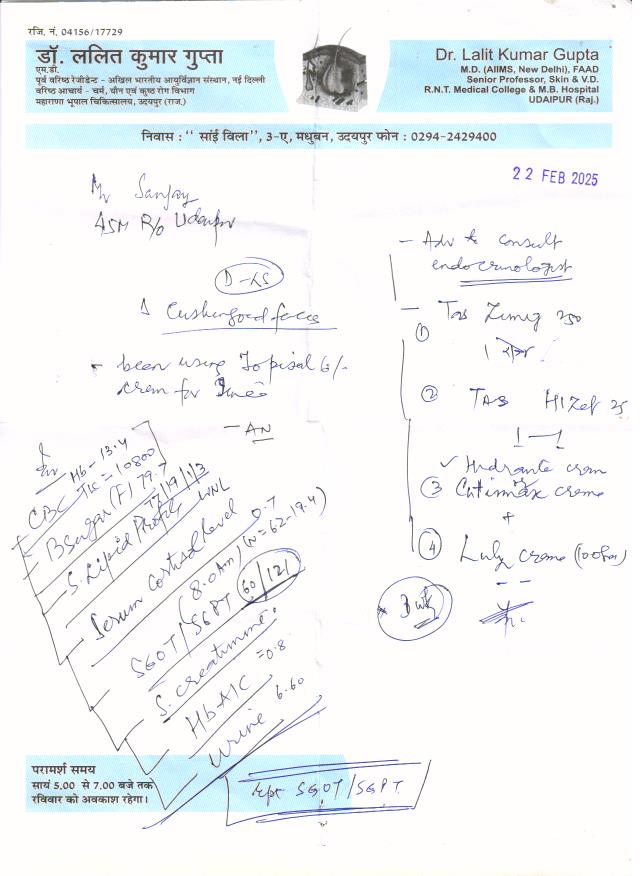 रजि. नं. 04156/17729
डॉ. ललित कुमार गुप्ता
एम.डी.
पूर्व वरिष्ठ रेजीडेन्ट - अखिल भारतीय आयुर्विज्ञान संस्थान, नई दिल्ली
वरिष्ठ आचार्य - चर्म, यौन एवं कुष्ठ रोग विभाग
महाराणा भूपाल चिकित्सालय, उदयपुर (राज.)
Dr. Lalit Kumar Gupta
M.D. (AIIMS, New Delhi), FAAD
Senior Professor, Skin & V.D.
R.N.T. Medical College & M.B. Hospital
UDAIPUR (Raj.)
निवास : ‘‘ सांई विला’’, 3-ए, मधुबन, उदयपुर फोन : 0294-2429400
22 FEB 2025
Mr Sanjay
45M R/o Udaipur
Cushingoid faces
- been using Topisal 6%
cream for
- AN
Hb - 13.4
CBC TLC = 10800
B Sugar (F) 79.7
77/19/1/3
S. Lipid Profile WNL
Serum Cortisol level 0.7
(8.0 Am) (N = 62-19.4)
SGOT/SGPT 60/121
S. Creatinine = 0.8
HbA1C 6.60
Urine
Rpt SGOT/SGPT
- Adv to consult
endocrinologist
① Tab Zimig 250
② TAB HIZet 25
1 - 1
Hydrante cream
③ Cutimax creme
+
④ Luly creme
3 wk
परामर्श समय
सायं 5.00 से 7.00 बजे तक
रविवार को अवकाश रहेगा।